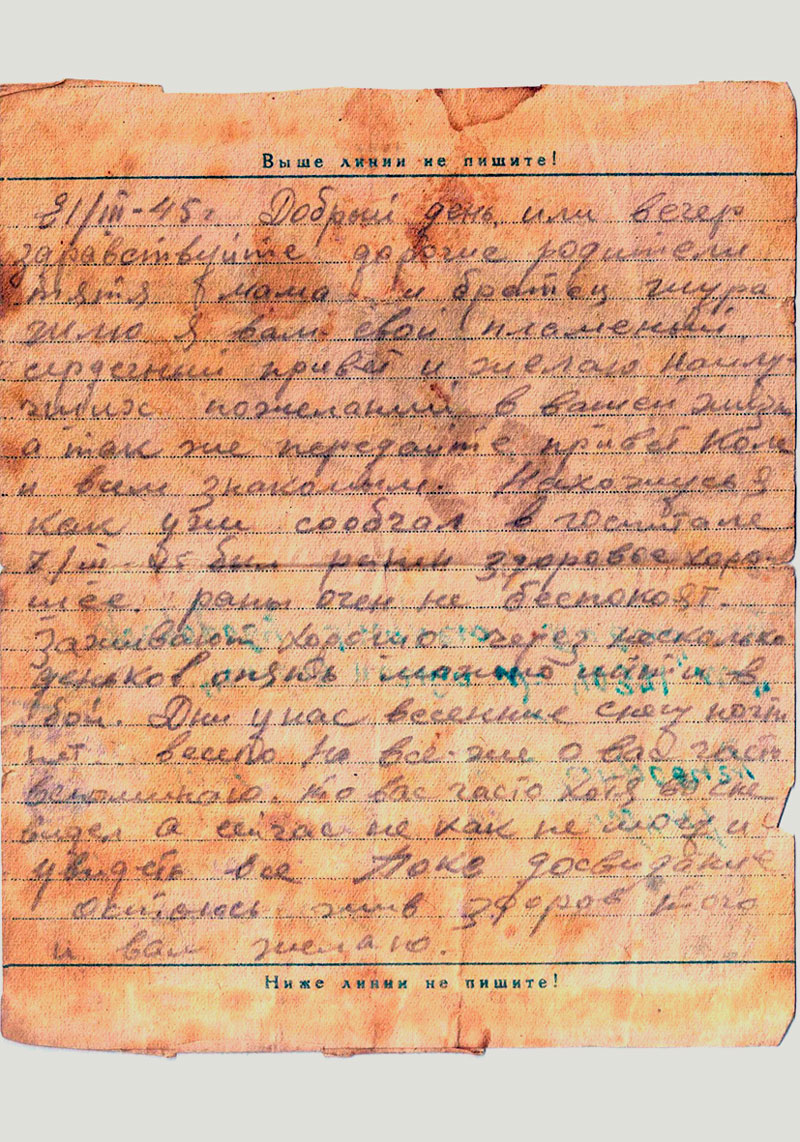 Выше линии не пишите!
21/III-45 г. Добрый день или вечер
здравствуйте дорогие родители
тятя и мама и братец шура
шлю я вам свой пламений
сердсений привет и желаю наилу-
чших пожеланий в вашей жизни
а так же передайте привет Коле
и всем знакомым. Нахожусь я
как уже сообчал в госпитале
7/III-45 был ранен здоровье хоро-
шее. раны очен не беспокоят.
Заживают хорошо. через несколько
деньков опять можно итти в
бой. Дни у нас весенние снегу почти
нет. весело но все-же о вас часто
вспоминаю. то вас часто хотя во сне
видел а сейчас не как не могу и
увидеть все Пока досвидание
остаюсь жив здоров того
и вам желаю.
Ниже линии не пишите!